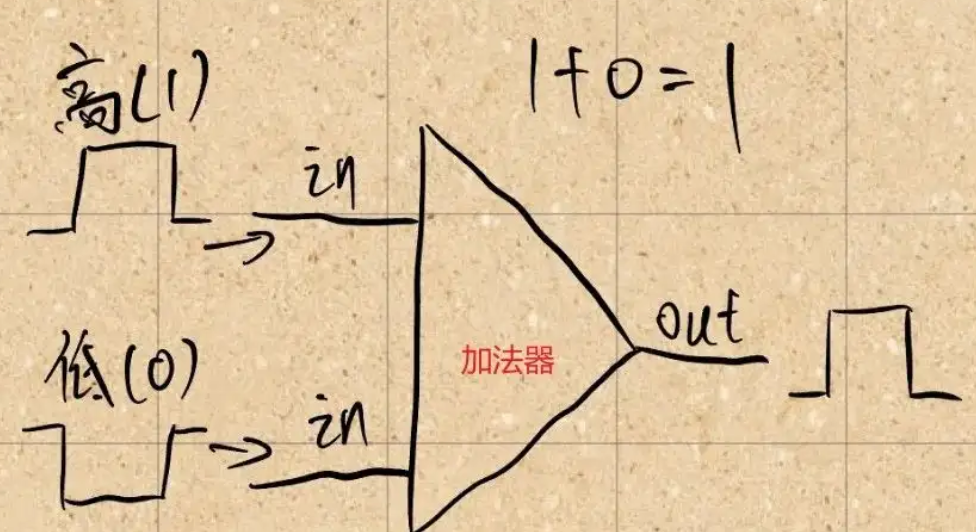 高(1)
1+0=1
in
低(0)
out
加法器
in